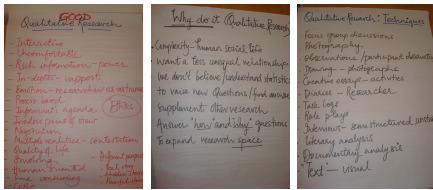 GOOD
Qualitative Research
- Interactive
- Uncomfortable
- Rich information - power
- In-depth - rapport
- Emotion - researcher as instrument
- Power
- Informant agenda
- Insiders point of view
- Negotiation
- Multiple realities - contestation
- Quality of life
- Human oriented
- Time consuming
Bias
Why do it (Qualitative Research)
• Complexity - human social life
Want a less unequal relationship
We don't believe/understand statistics
to raise new questions/find answers
Supplement other research
Answer "how" and "why" questions
To expand research space
Qualitative Research: Techniques
- Focus group discussions
- Photography
- Observations/participant observation
- Drawing - photographs
- Creative essays - activities
- Diaries - Researcher
- Task logs
- Role plays
- Interviews - semi structured
- Literary analysis
- Documentary analysis
- Text - visual